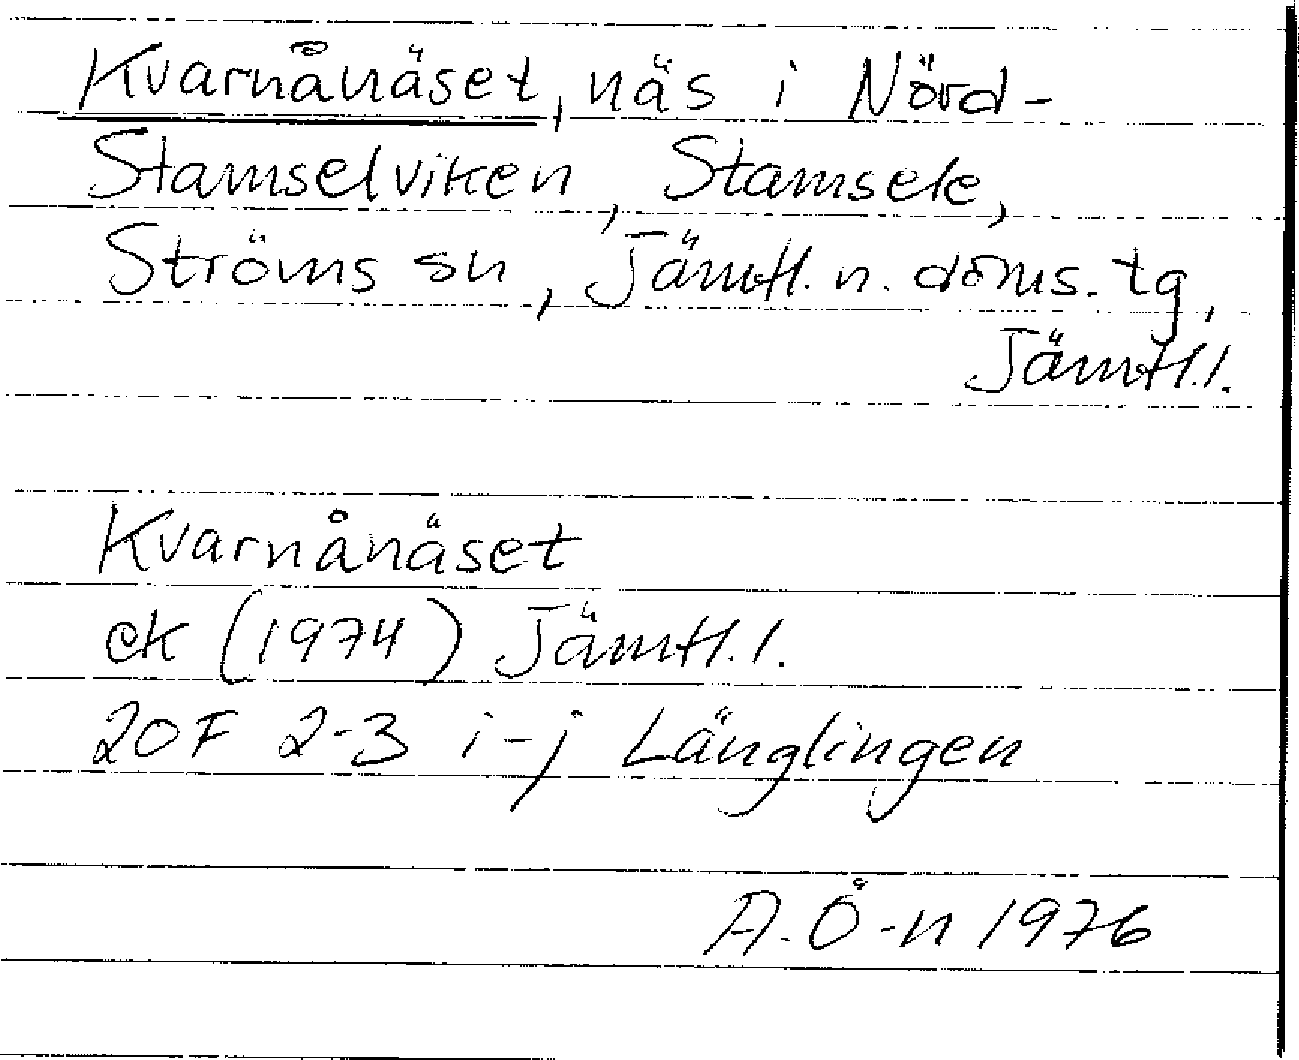 Kvarnånäset, näs i Nörd-
Stamselviken, Stamsele,
Ströms sn, Jämtl. n. doms. tg,
Jämtl. l.
Kvarnånäset
ek (1974) Jämtl. l.
20F 2-3 i-j Länglingen
A. Ö-n 1976